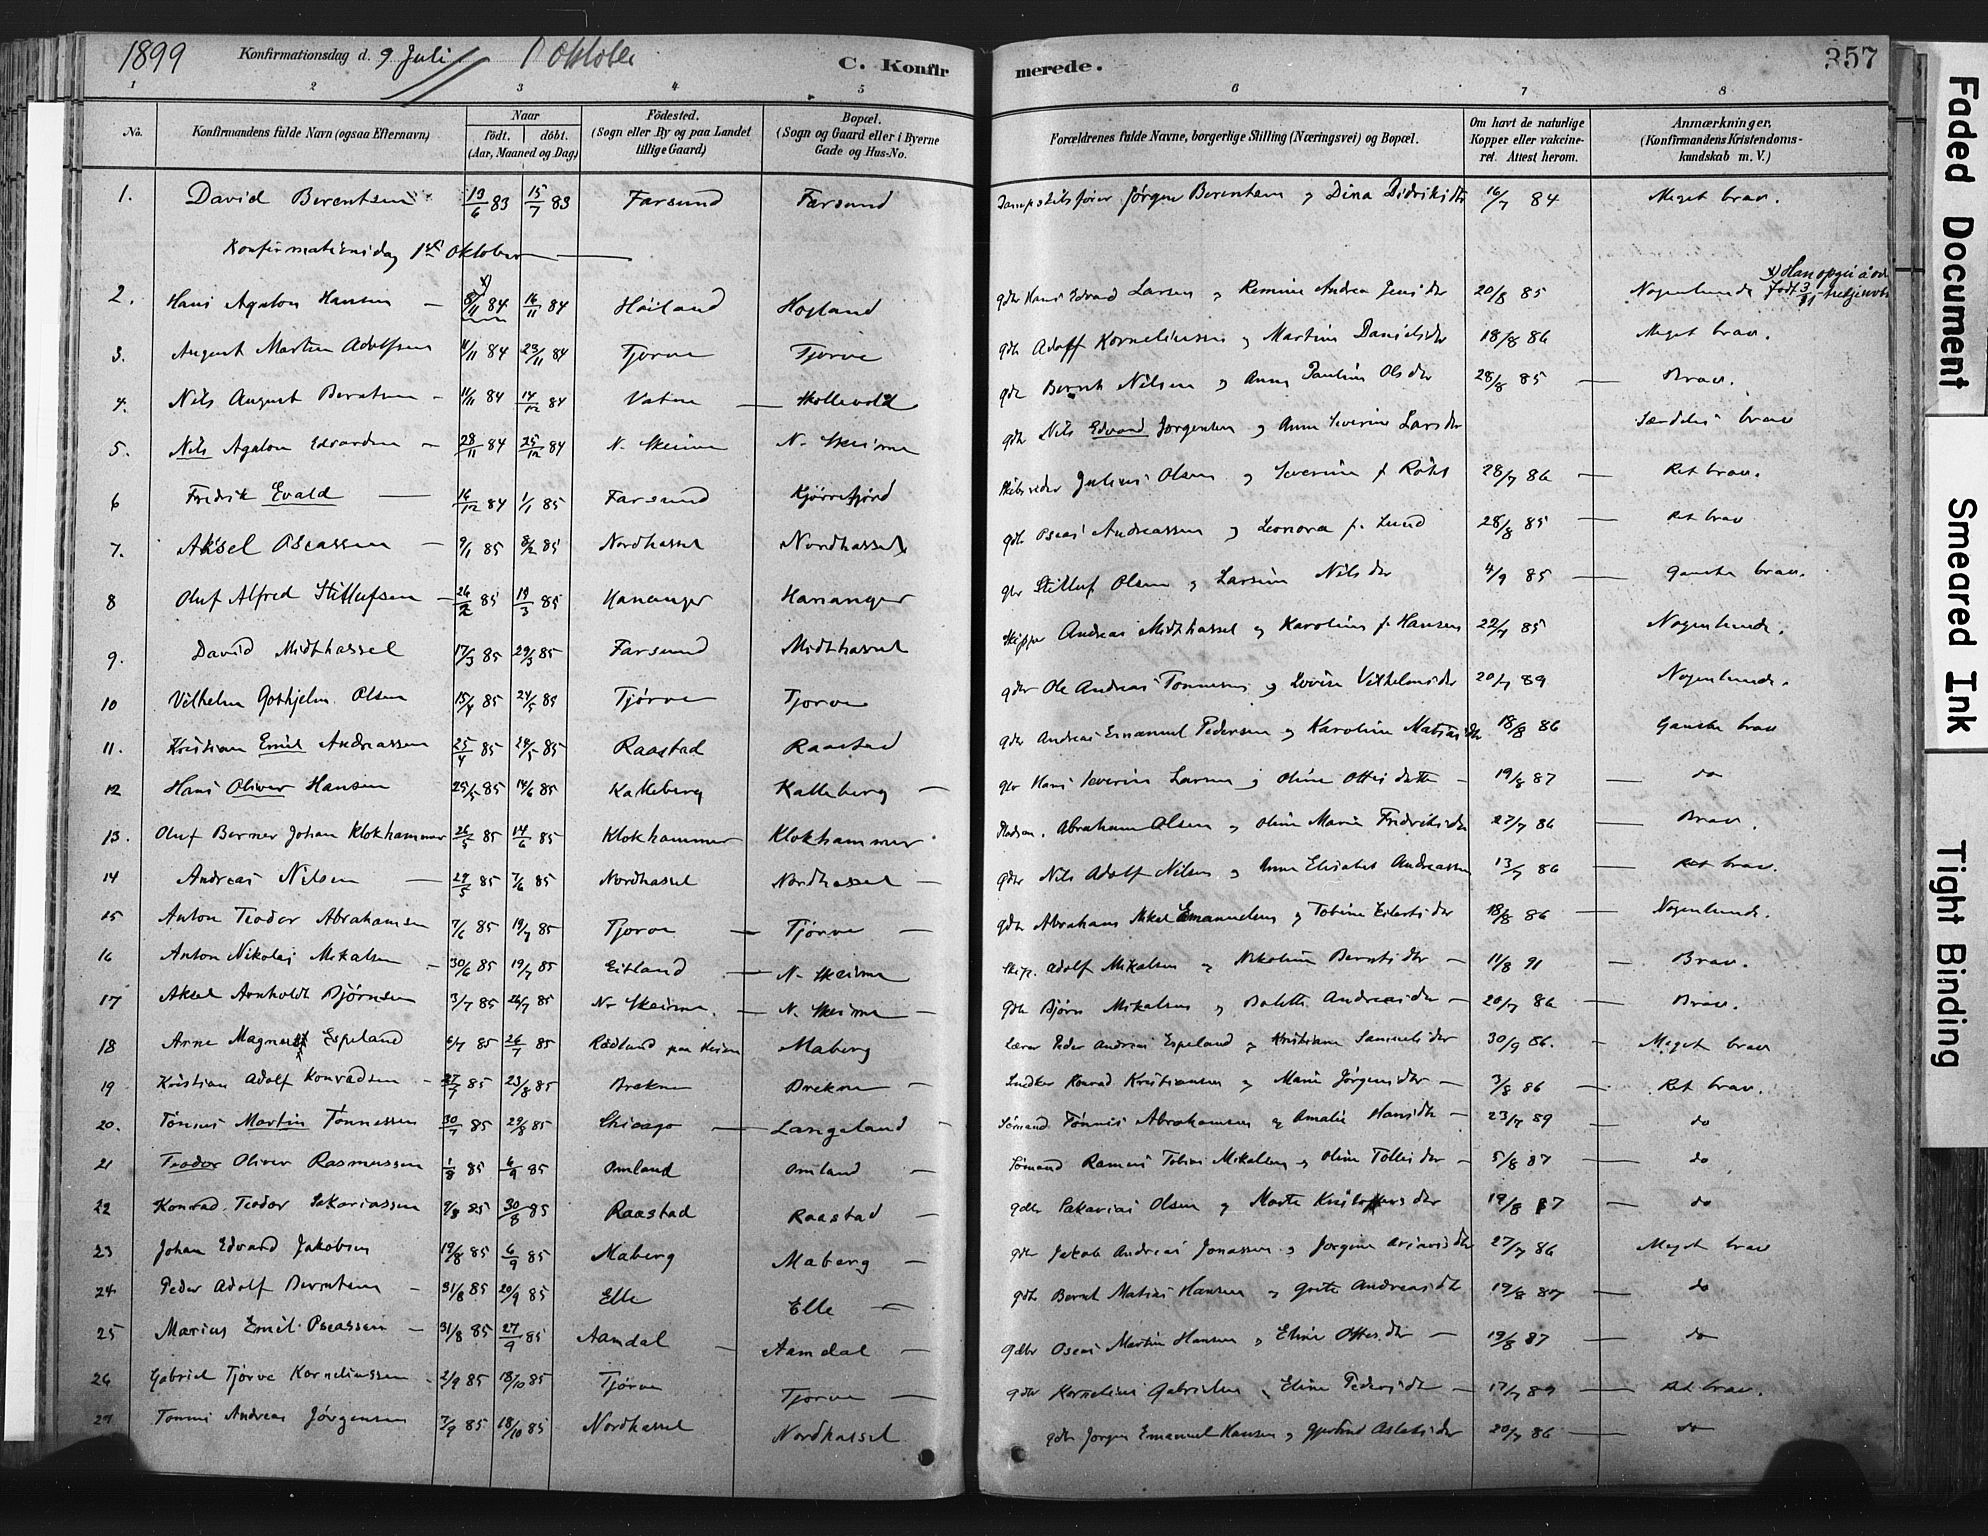 1899 Konfirmationsdag d. 9 Juli // 1 Oktober C. Konfirmerede. 357
1 2 3 4 5 6 7 8
No. Konfirmandens fulde Navn (ogsaa Efternavn) Naar født. døbt. (Aar, Maaned og Dag) Fødested. (Sogn eller By og paa Landet tillige Gaard) Bopæl. (Sogn og Gaard eller i Byerne Gade og Hus-No. Forældrenes fulde Navne, borgerlige Stilling (Næringsvei) og Bopæl. Om havt de naturlige Kopper eller vakcineret. Attest herom. Anmærkninger, (Konfirmandens Kristendomskundskab m. V.)
1. David Berentsen 13/6 83 15/7 83 Farsund Farsund Jørgen Berentsen og Dina Didriksdtr 16/7 84 Meget brav.
Konfirmationsdag 1ste Oktober
2. Hans Agaton Hansen 8/11 84 16/11 84 Høiland Høyland gdbr Hans Edvard Larsen og Andrea Jensdtr 20/8 85 Nogenlunde x) Han opgir å være født 3/11
3. August Martin Adolfsen 11/11 84 23/11 84 Tjorve Tjorve gdb Adolf Korneliussen og Martine Danielsdtr 18/8 86 Meget brav.
4. Nils August Berntsen 11/11 84 14/12 84 Vatne Skollevold gdb Bernt Nilsen og Anne Pauline Olsdtr 28/8 85 Brav.
5. Nils Agaton Edvardsen 28/11 84 25/12 84 N. Skeime N. Skeime gdb Nils Edvard Jørgensen og Anne Severine Larsdtr Særdeles brav
6 Fredrik Evald 16/12 84 1/1 85 Farsund Kjørrefjord Skibsreder Julius Olsen og Severine f. 28/7 86 Ret brav.
7. Aksel Oseassen 9/1 85 8/2 85 Nordhassel Nordhassel gdb Oseas Andreassen og Leonora f. Lund 28/8 85 Ret brav
8 Oluf Alfred Stillufsen 26/2 85 19/3 85 Hananger Hananger gbr Stilluf Olsen og Larsine Nilsdtr 4/9 85 Ganske brav.
9. David Midthassel 17/3 85 29/3 85 Farsund Midthassel Skipper Andreas Midthassel og Karoline f. Hansen 22/7 85 Nogenlunde.
10 Vilhelm Gothjelm Olsen 15/4 85 24/5 85 Tjørve Tjorve gdbr Ole Andreas Tønnesen og Lovise Vilhelmsdtr 20/7 89 Nogenlunde.
11. Kristian Emil Andreassen 25/4 85 24/5 85 Raastad Raastad gdbr Andreas Emanuel Pedersen og Karoline Matiasdtr 18/8 86 Ganske brav
12 Hans Oliver Hansen 25/5 85 14/6 85 Kalleberg Kalleberg gbr Hans Severin Larsen og Oline Ottesdatter 19/8 87 do
13. Oluf Berner Johan Klokhammer 26/5 85 14/6 85 Klokhammer Klokhammer Abraham Olsen og Oline Marie Fredriksdtr 27/7 86 Brav.
14 Andreas Nilsen 29/5 85 7/6 85 Nordhassel Nordhassel gdbr Nils Adolf Nilsen og Anne Elisabet Andreassen 13/7 86 Ret brav.
15 Anton Teodor Abrahamsen 7/6 85 19/7 85 Tjorve Tjørve gdb Abraham Mikal Emanuelsen og Tobine Eilertsdtr 18/8 86 Nogenlunde.
16 Anton Nikolai Mikalsen 30/6 85 19/7 85 Eitland N. Skeime Skip. Adolf Mikalsen og Nikoline Berntsdtr 11/8 91 Brav.
17 Aksel Arnholdt Bjørnsen 3/7 85 26/7 85 N. Skeime. N. Skeime gdb Bjørn Mikalsen og Bolette Andreasdtr 20/7 86 Brav.
18 Arne Magnus Espeland 6/7 85 26/7 85 Rødland paa Maberg Lærer Peder Andreas Espeland og Kristiane Samuelsdtr 30/9 86. Meget brav
19 Kristian Adolf Konradsen 27/7 85 23/8 85 Brekne Brekne Konrad Kristiansen og Marie Jørgensdtr 3/8 86 Ret brav.
20. Tønnes Martin Tønnessen 30/7 85 29/8 85 Chicago Langeland Sømand Tønnes Abrahamsen og Amalie Hansdtr 23/7 89 do
21 Teodor Oliver Rasmussen 1/8 85 6/9 85 Omland Omland Sømand Rasmus Tobias Mikalsen og Oline Tollesdtr 5/8 87 do
22 Konrad Teodor Sakariassen 9/8 85 30/8 85 Raastad Raastad gdbr Sakarias Olsen og Marte Kristoffersdtr 19/8 87 do
23 Johan Edvard Jakobsen 19/8 85 6/9 85 Maberg Maberg gdb Jakob Andreas Jonassen og Jørgine 27/7 86 Meget brav
24 Peder Adolf Berntsen 31/8 85 20/9 85 Elle Elle gdb Bernt Matias Hansen og Grete Andreasdtr 19/8 87 do
25 Marius Emil Oseassen 31/8 85 27/9 85 Aamdal Aamdal gdbr Oseas Martin Hansen og Eline Ottesdtr 19/8 87 do
26 Gabriel Tjørve Korneliussen 2/9 85 18/10 85 Tjørve Tjorve gdbr Kornelius Gabrielsen og Eline Pedersdtr 17/7 89 Ret brav.
27 Tønnes Andreas Jørgensen 7/9 85 18/10 85 Nordhassel Nordhassel gdbr Jørgen Emanuel Hansen og Gjertrud Aslaksdtr 20/7 86 do
Faded Document
Smeared Ink
Tight Binding